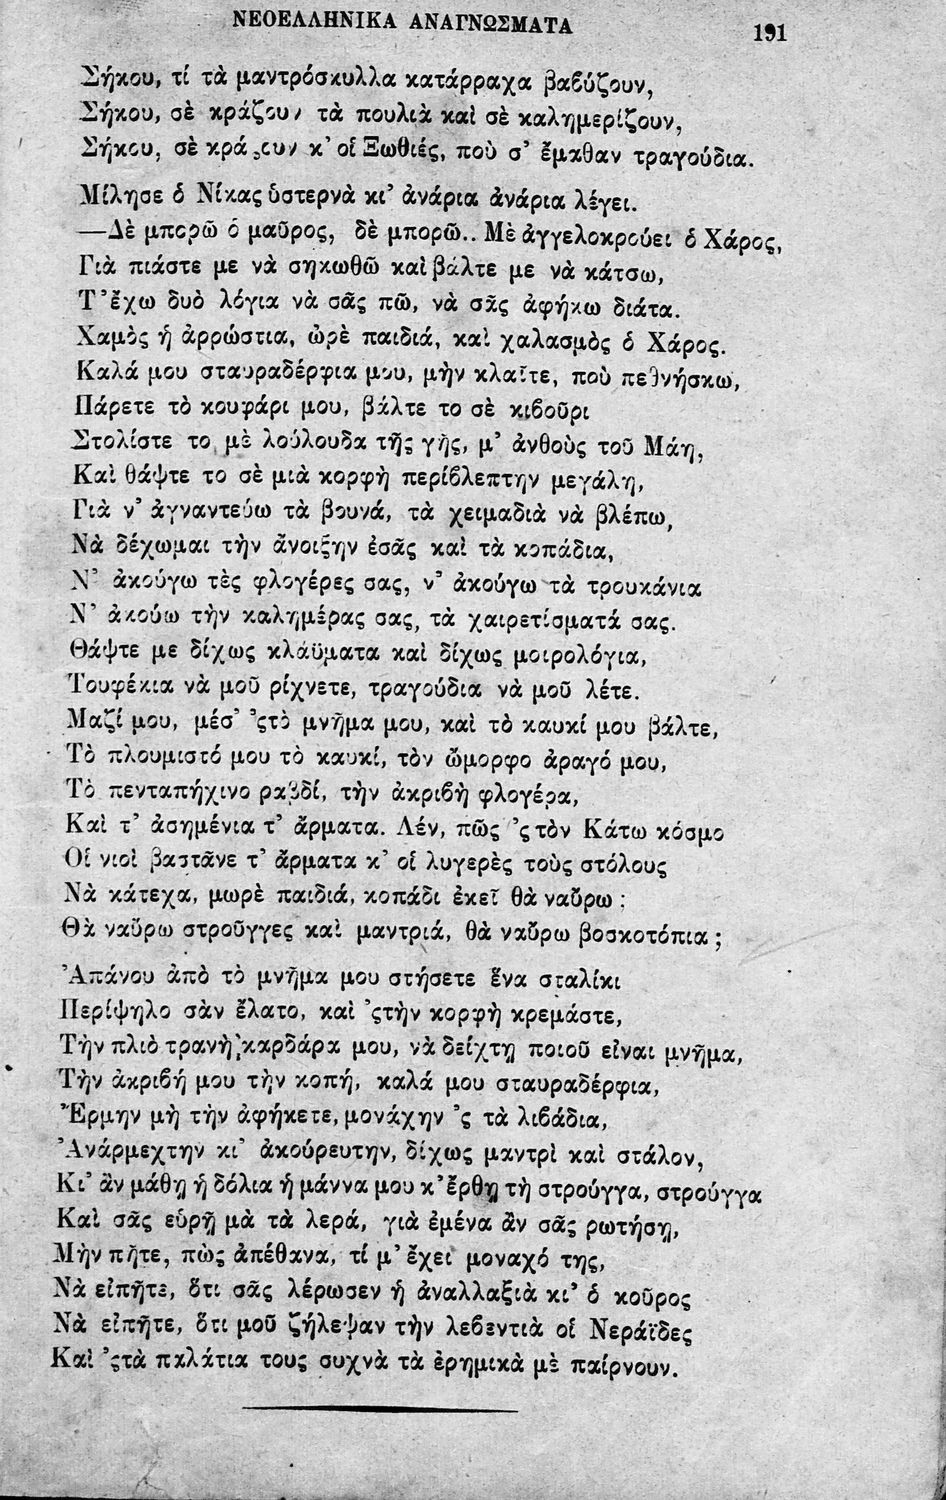 ΝΕΟΕΛΛΗΝΙΚΑ ΑΝΑΓΝΩΣΜΑΤΑ 191
Σήκου, τί τὰ μαντρόσκυλλα κατάρραχα βαβύζουν,
Σήκου, σὲ κράζουν τὰ πουλιὰ καὶ σὲ καλημερίζουν,
Σήκου, σὲ κράζουν κ' οἱ Ξωθιές, ποὺ σ' ἔμαθαν τραγούδια.
Μίλησε ὁ Νίκας ὑστερνὰ κι' ἀνάρια ἀνάρια λέγει.
—Δὲ μπορῶ ὁ μαῦρος, δὲ μπορῶ.. Μὲ ἀγγελοκρούει ὁ Χάρος,
Γιὰ πιάστε με νὰ σηκωθῶ καὶ βάλτε με νὰ κάτσω,
Τ' ἔχω δυὸ λόγια νὰ σᾶς πῶ, νὰ σᾶς ἀφήκω διάτα.
Χαμὸς ἡ ἀρρώστια, ὠρὲ παιδιά, καὶ χαλασμὸς ὁ Χάρος.
Καλά μου σταυραδέρφια μου, μὴν κλαῖτε, ποὺ πεθνήσκω,
Πάρετε τὸ κουφάρι μου, βάλτε το σὲ κιβοῦρι
Στολίστε το μὲ λούλουδα τῆς γῆς, μ' ἀνθοὺς τοῦ Μάη,
Καὶ θάψτε το σὲ μιὰ κορφὴ περίβλεπτην μεγάλη,
Γιὰ ν' ἀγναντεύω τὰ βουνά, τὰ χειμαδιὰ νὰ βλέπω,
Νὰ δέχωμαι τὴν ἄνοιξην ἐσᾶς καὶ τὰ κοπάδια,
Ν' ἀκούγω τὲς φλογέρες σας, ν' ἀκούγω τὰ τρουκάνια
Ν' ἀκούω τὴν καλημέρας σας, τὰ χαιρετίσματά σας.
Θάψτε με δίχως κλάϋματα καὶ δίχως μοιρολόγια,
Τουφέκια νὰ μοῦ ρίχνετε, τραγούδια νὰ μοῦ λέτε.
Μαζί μου, μέσ' 'ςτὸ μνῆμα μου, καὶ τὸ καυκί μου βάλτε,
Τὸ πλουμιστό μου τὸ καυκί, τὸν ὤμορφο ἀραγό μου,
Τὸ πενταπήχινο ραβδί, τὴν ἀκριβὴ φλογέρα,
Καὶ τ' ἀσημένια τ' ἄρματα. Λέν, πῶς 'ςτὸν Κάτω κόσμο
Οἱ νιοὶ βαστᾶνε τ' ἄρματα κ' οἱ λυγερὲς τοὺς στόλους
Νὰ κάτεχα, μωρὲ παιδιά, κοπάδι ἐκεῖ θὰ ναὔρω ;
Θὰ ναὔρω στροῦγγες καὶ μαντριά, θὰ ναὔρω βοσκοτόπια ;
Ἀπάνου ἀπὸ τὸ μνῆμα μου στήσετε ἕνα σταλίκι
Περίψηλο σὰν ἔλατο, καὶ 'ςτὴν κορφὴ κρεμάστε,
Τὴν πλιὸ τρανὴ καρδάρα μου, νὰ δείχτῃ ποιοῦ εἶναι μνῆμα,
Τὴν ἀκριβή μου τὴν κοπή, καλά μου σταυραδέρφια,
Ἔρμην μὴ τὴν ἀφήκετε, μονάχην 'ς τὰ λιβάδια,
Ἀνάρμεχτην κι' ἀκούρευτην, δίχως μαντρὶ καὶ στάλον,
Κι' ἂν μάθῃ ἡ δόλια ἡ μάννα μου κ' ἔρθῃ τὴ στρούγγα, στρούγγα
Καὶ σᾶς εὑρῇ μὰ τὰ λερά, γιὰ ἐμένα ἂν σᾶς ρωτήσῃ,
Μὴν πῆτε, πὼς ἀπέθανα, τί μ' ἔχει μοναχό της,
Νὰ εἰπῆτε, ὅτι σᾶς λέρωσεν ἡ ἀναλλαξιὰ κι' ὁ κοῦρος
Νὰ εἰπῆτε, ὅτι μοῦ ζήλεψαν τὴν λεβεντιὰ οἱ Νεράϊδες
Καὶ 'ςτὰ παλάτια τους συχνὰ τὰ ἐρημικὰ μὲ παίρνουν.